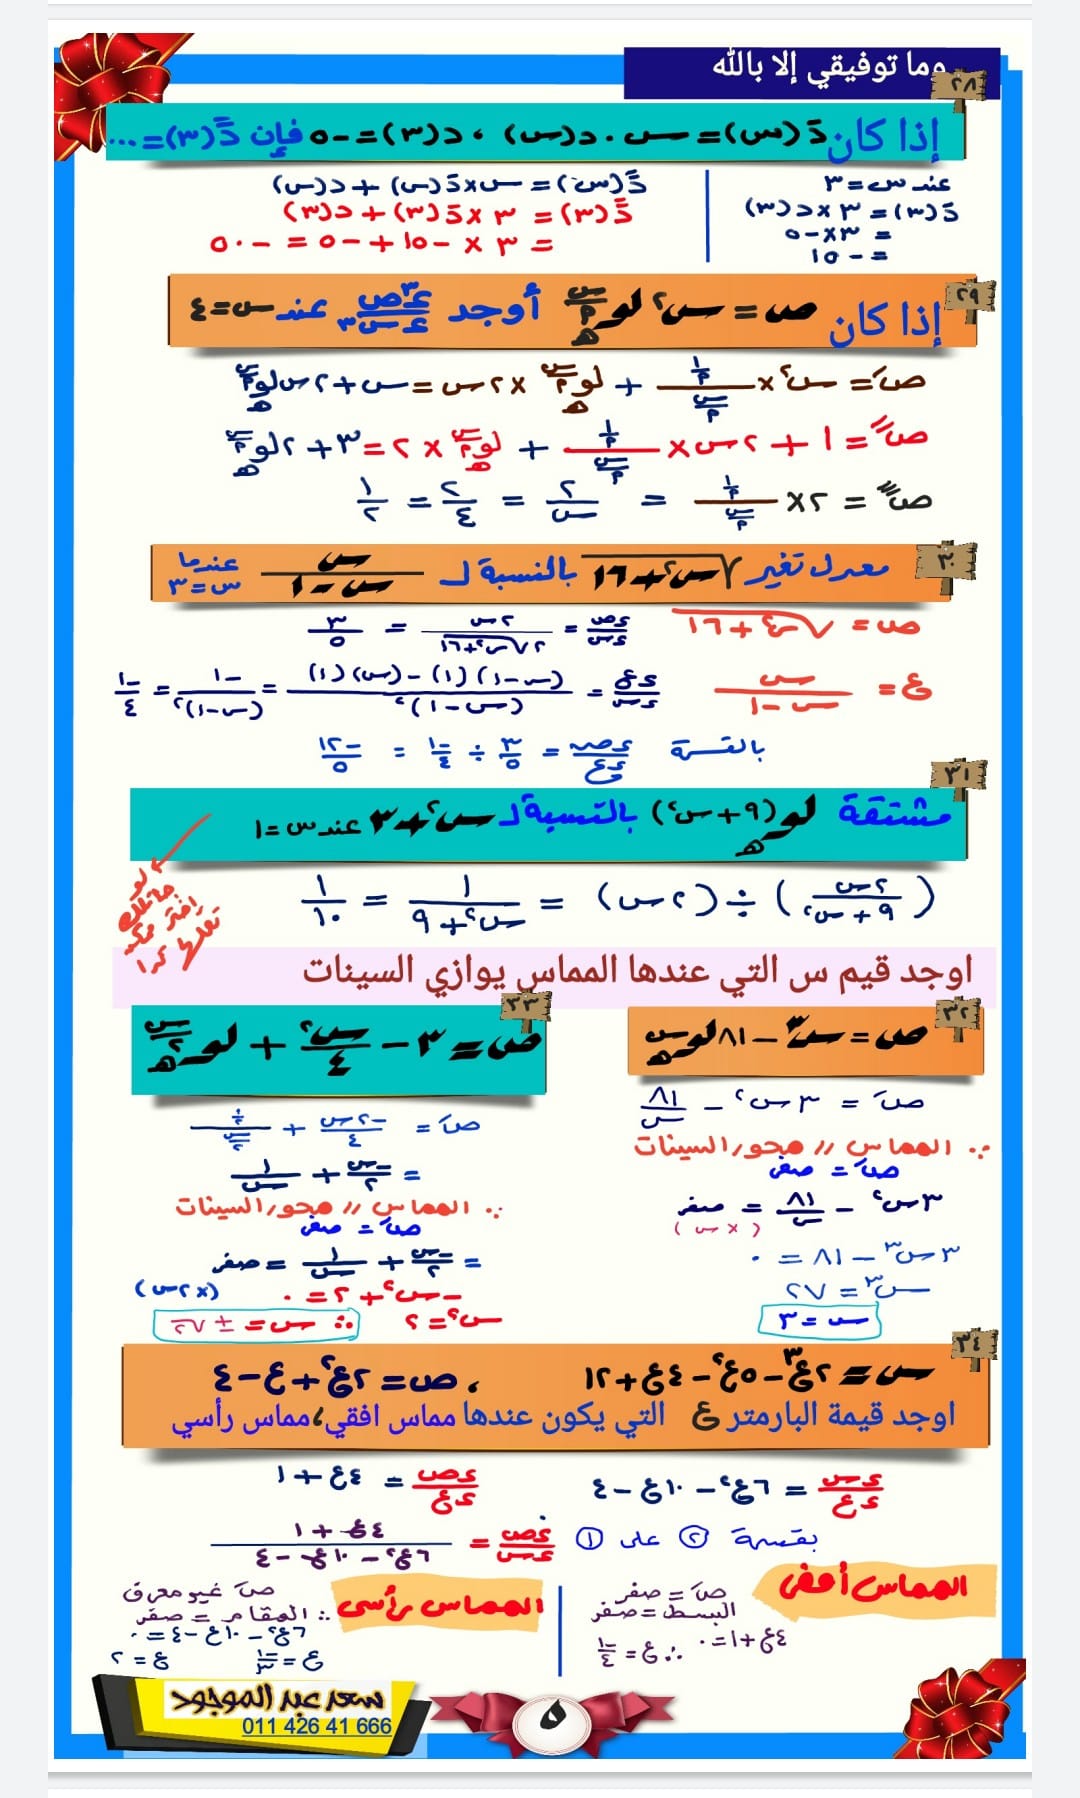 وما توفيقي إلا بالله
٢٨
إذا كان دَ(س)=س . د(س) ، د(٣)=-٥ فإن دً(٣)=...
عند س=٣
دَ(٣)=٣×د(٣)
=٣×-٥
=-١٥
دً(س)=س×دَ(س)+د(س)
دً(٣)=٣×دَ(٣)+د(٣)
=٣×-١٥+-٥=-٥٠
٢٩
إذا كان ص=س٢ لوهـ س/م أوجد ء٣ص/ءس٣ عند س=٤
صَ=س٢×(١/م)/(س/م)+لوهـ س/م×٢س=س+٢س لوهـ س/م
صً=١+٢س×(١/م)/(س/م)+لوهـ س/م×٢=٣+٢لوهـ س/م
صً=٢×(١/م)/(س/م)=٢/س=٢/٤=١/٢
٣٠
معدل تغير √س٢+١٦ بالنسبة لـ س/س-١ عندما س=٣
ص=√س٢+١٦ ءص/ءس=٢س/٢√س٢+١٦=٣/٥
ع=س/س-١ ءع/ءس=(س-١)(١)-(س)(١)/(س-١)٢=-١/(س-١)٢=-١/٤
بالقسمة ءص/ءع=٣/٥÷-١/٤=-١٢/٥
٣١
مشتقة لوهـ(٩+س٢) بالنسبة لـ س٢+٣ عند س=١
(٢س/٩+س٢)÷(٢س)=١/س٢+٩=١/١٠
لو
جاتلك
إختر ممكن
تعلها كرا
اوجد قيم س التي عندها المماس يوازي السينات
٣٢
ص=س٣-٨١لوهـ س
صَ=٣س٢-٨١/س
∵ المماس // محور السينات
صَ=صفر
٣س٢-٨١/س=صفر
(×س)
٣س٣-٨١=٠
س٣=٢٧
س=٣
٣٣
ص=٣-س٢/٤+لوهـ س/٢
صَ=-٢س/٤+(١/٢)/(س/٢)
=-س/٢+١/س
∵ المماس // محور السينات
صَ=صفر
=-س/٢+١/س=صفر
-س٢+٢=٠ (×٢س)
س٢=٢ ∴ س=±√٢
٣٤
س=٢ع٣-٥ع٢-٤ع+١٢ ، ص=٢ع٢+ع-٤
اوجد قيمة البارمتر ع التي يكون عندها مماس افقي، مماس رأسي
ءس/ءع=٦ع٢-١٠ع-٤ ءص/ءع=٤ع+١
بقسمة ② على ① ءص/ءس=٤ع+١/٦ع٢-١٠ع-٤
المماس أفقى
صَ=صفر
البسط=صفر
٤ع+١=٠ ∴ ع=-١/٤
المماس رأسى
صَ غير معرف
∴ المقام=صفر
٦ع٢-١٠ع-٤=٠
ع=-١/٣ ع=٢
سعد عبد الموجود
011 426 41 666
٥